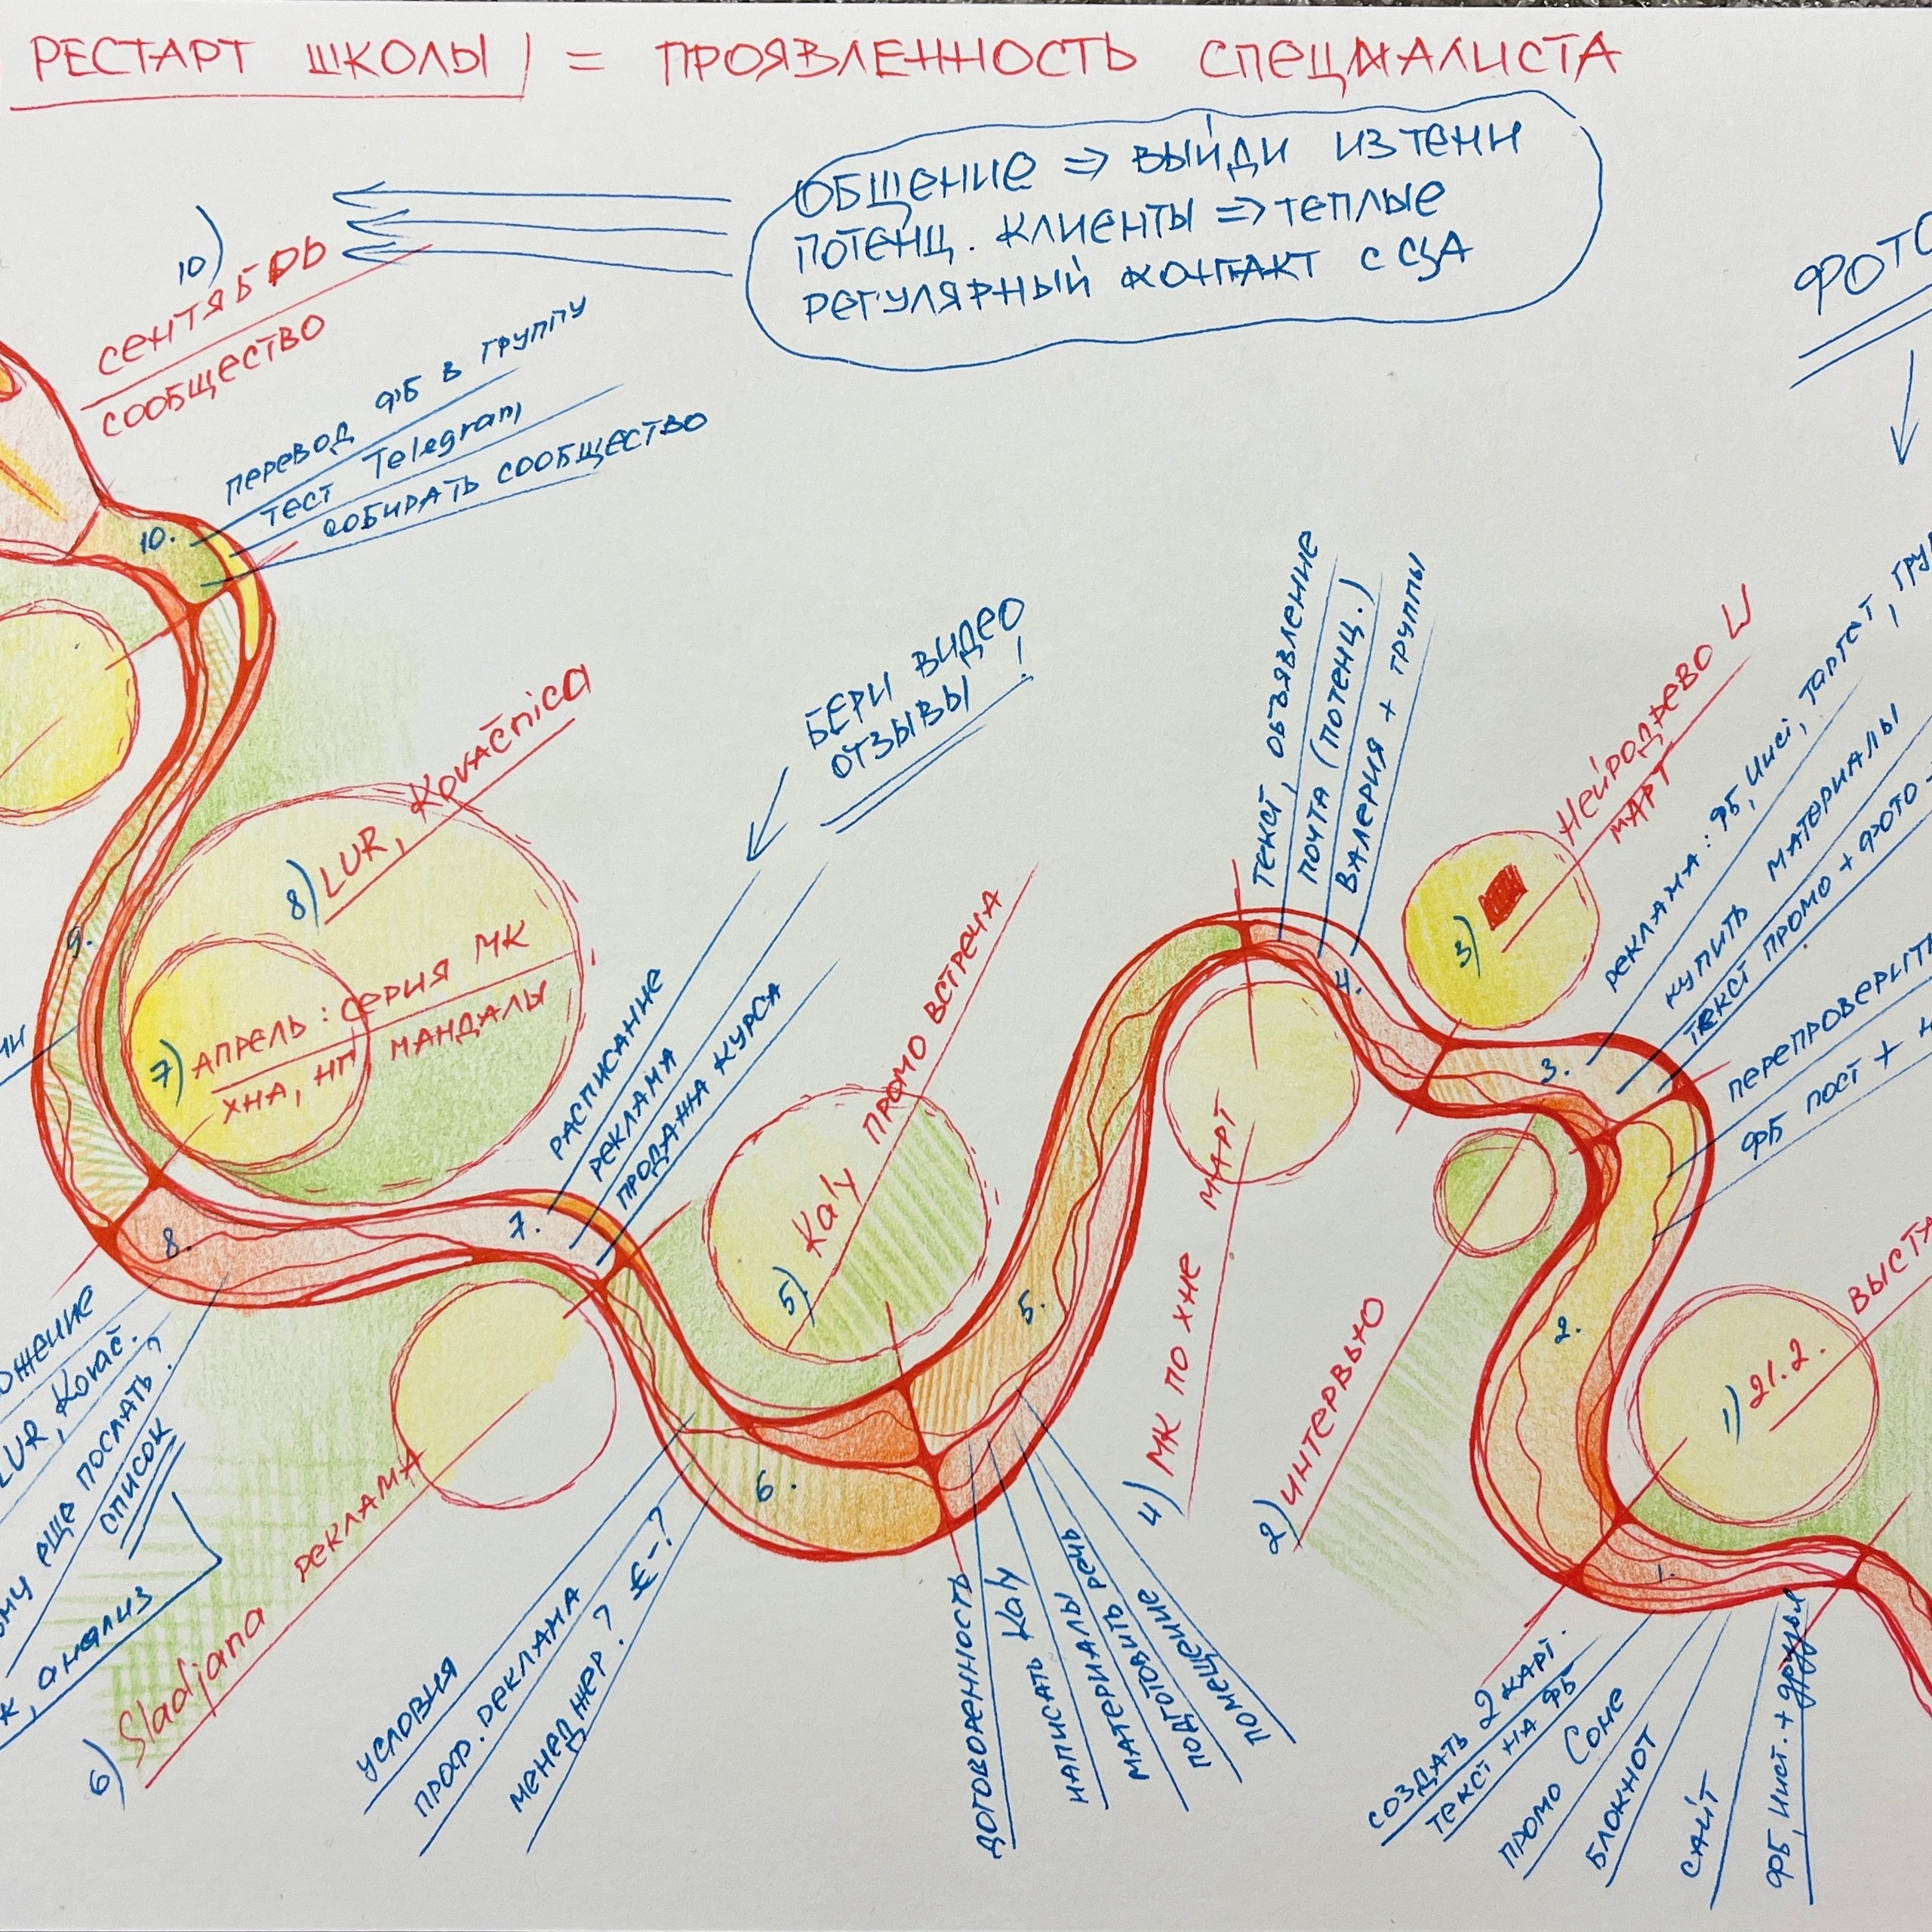 РЕСТАРТ ШКОЛЫ = ПРОЯВЛЕННОСТЬ СПЕЦИАЛИСТА
ОБЩЕНИЕ => ВЫЙДИ ИЗ ТЕНИ
ПОТЕНЦ. КЛИЕНТЫ => ТЕПЛЫЕ
РЕГУЛЯРНЫЙ КОНТАКТ С ЦА
ФОТО
10)
СЕНТЯБРЬ
СООБЩЕСТВО
ПЕРЕВОД ФБ В ГРУППУ
ТЕСТ Telegram
СОБИРАТЬ СООБЩЕСТВО
10.
БЕРИ ВИДЕО
ОТЗЫВЫ!
8) LUR, Kovačnica
9.
7) АПРЕЛЬ: СЕРИЯ МК
ХНА, НГ МАНДАЛЫ
РАСПИСАНИЕ
РЕКЛАМА
ПРОДАЖА КУРСА
7.
8.
5) Kaly ПРОМО ВСТРЕЧА
5.
ТЕКСТ, ОБЪЯВЛЕНИЕ
ПОЧТА (ПОТЕНЦ.)
ВАЛЕРИЯ + ГРУППЫ
4.
3) НЕЙРОДРЕВО
МАРТ
РЕКЛАМА: ФБ, Инст, ТАРГЕТ, ГРУ
КУПИТЬ МАТЕРИАЛЫ
ТЕКСТ ПРОМО + ФОТО
3.
ПЕРЕПРОВЕРИТЬ
ФБ ПОСТ +
2.
4) МК ПО ХНЕ МАРТ
2) ИНТЕРВЬЮ
1) 21.2. ВЫСТУ
1.
СОЗДАТЬ 2 КАРТ.
ТЕКСТ НА ФБ
ПРОМО Соне
БЛОКНОТ
САЙТ
ФБ, Инст. + друзья
ДОГОВОРЕННОСТЬ
НАПИСАТЬ Kaly
МАТЕРИАЛЫ
ПОДГОТОВИТЬ РЕЧЬ
ПОМЕЩЕНИЕ
6.
УСЛОВИЯ
ПРОФ. РЕКЛАМА
МЕНЕДЖЕР? €-?
6) Sladjana РЕКЛАМА
ОЖЕНИЕ
LUR, Kovač.
ому еще послать?
СПИСОК
анализ